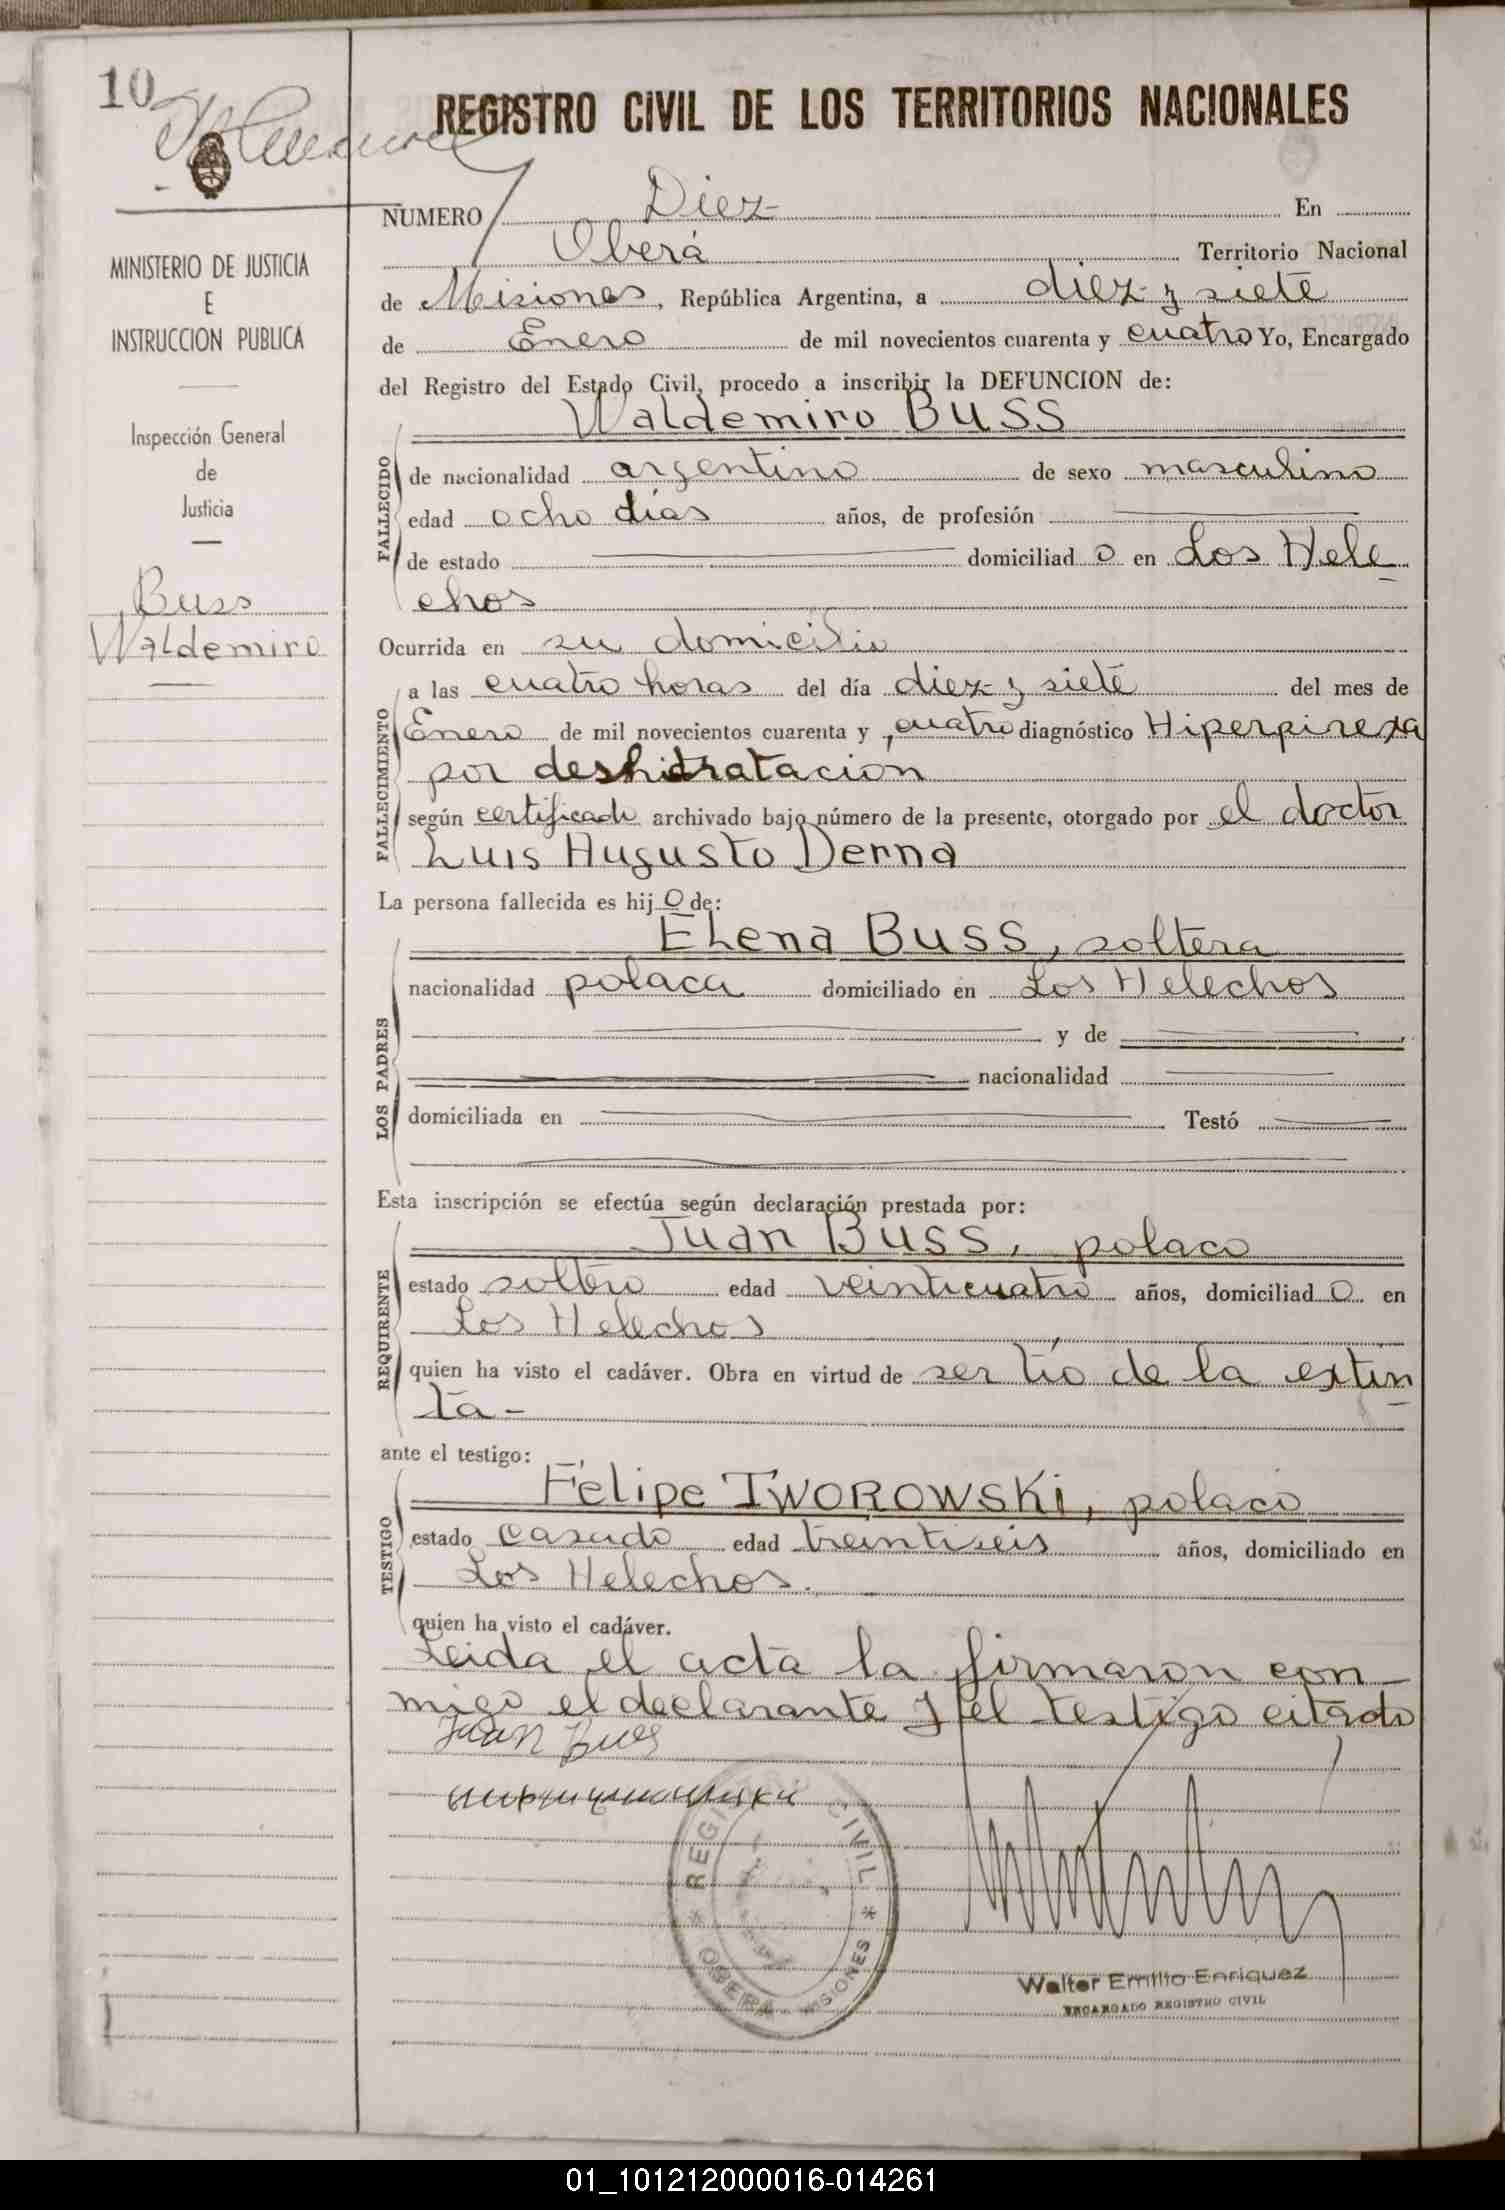 10
REGISTRO CIVIL DE LOS TERRITORIOS NACIONALES
MINISTERIO DE JUSTICIA
E
INSTRUCCION PUBLICA
Inspección General
de
Justicia
Buss
Waldemiro
NUMERO Diez En
Oberá Territorio Nacional
de Misiones, República Argentina, a diez y siete
de Enero de mil novecientos cuarenta y cuatro Yo, Encargado
del Registro del Estado Civil, procedo a inscribir la DEFUNCION de:
Waldemiro BUSS
FALLECIDO
de nacionalidad argentino de sexo masculino
edad ocho días años, de profesión
de estado domiciliad o en Los Hele
chos
Ocurrida en su domicilio
FALLECIMIENTO
a las cuatro horas del día diez y siete del mes de
Enero de mil novecientos cuarenta y cuatro diagnóstico Hiperpirexia
por deshidratacion
según certificado archivado bajo número de la presente, otorgado por el doctor
Luis Augusto Derna
La persona fallecida es hij o de:
LOS PADRES
Elena BUSS, soltera
nacionalidad polaca domiciliado en Los Helechos
y de
nacionalidad
domiciliada en Testó
Esta inscripción se efectúa según declaración prestada por:
REQUIRENTE
Juan BUSS, polaco
estado soltero edad veinticuatro años, domiciliad o en
Los Helechos
quien ha visto el cadáver. Obra en virtud de ser tío de la extin
ta-
ante el testigo:
TESTIGO
Felipe IWOROWSKI, polaco
estado casado edad treintiseis años, domiciliado en
Los Helechos.
quien ha visto el cadáver.
Leida el acta la firmaron con
migo el declarante y el testigo citado
Juan Bus
REGISTRO CIVIL
* OBERA - MISIONES *
Walter Emilio Enriquez
ENCARGADO REGISTRO CIVIL
01_101212000016-014261